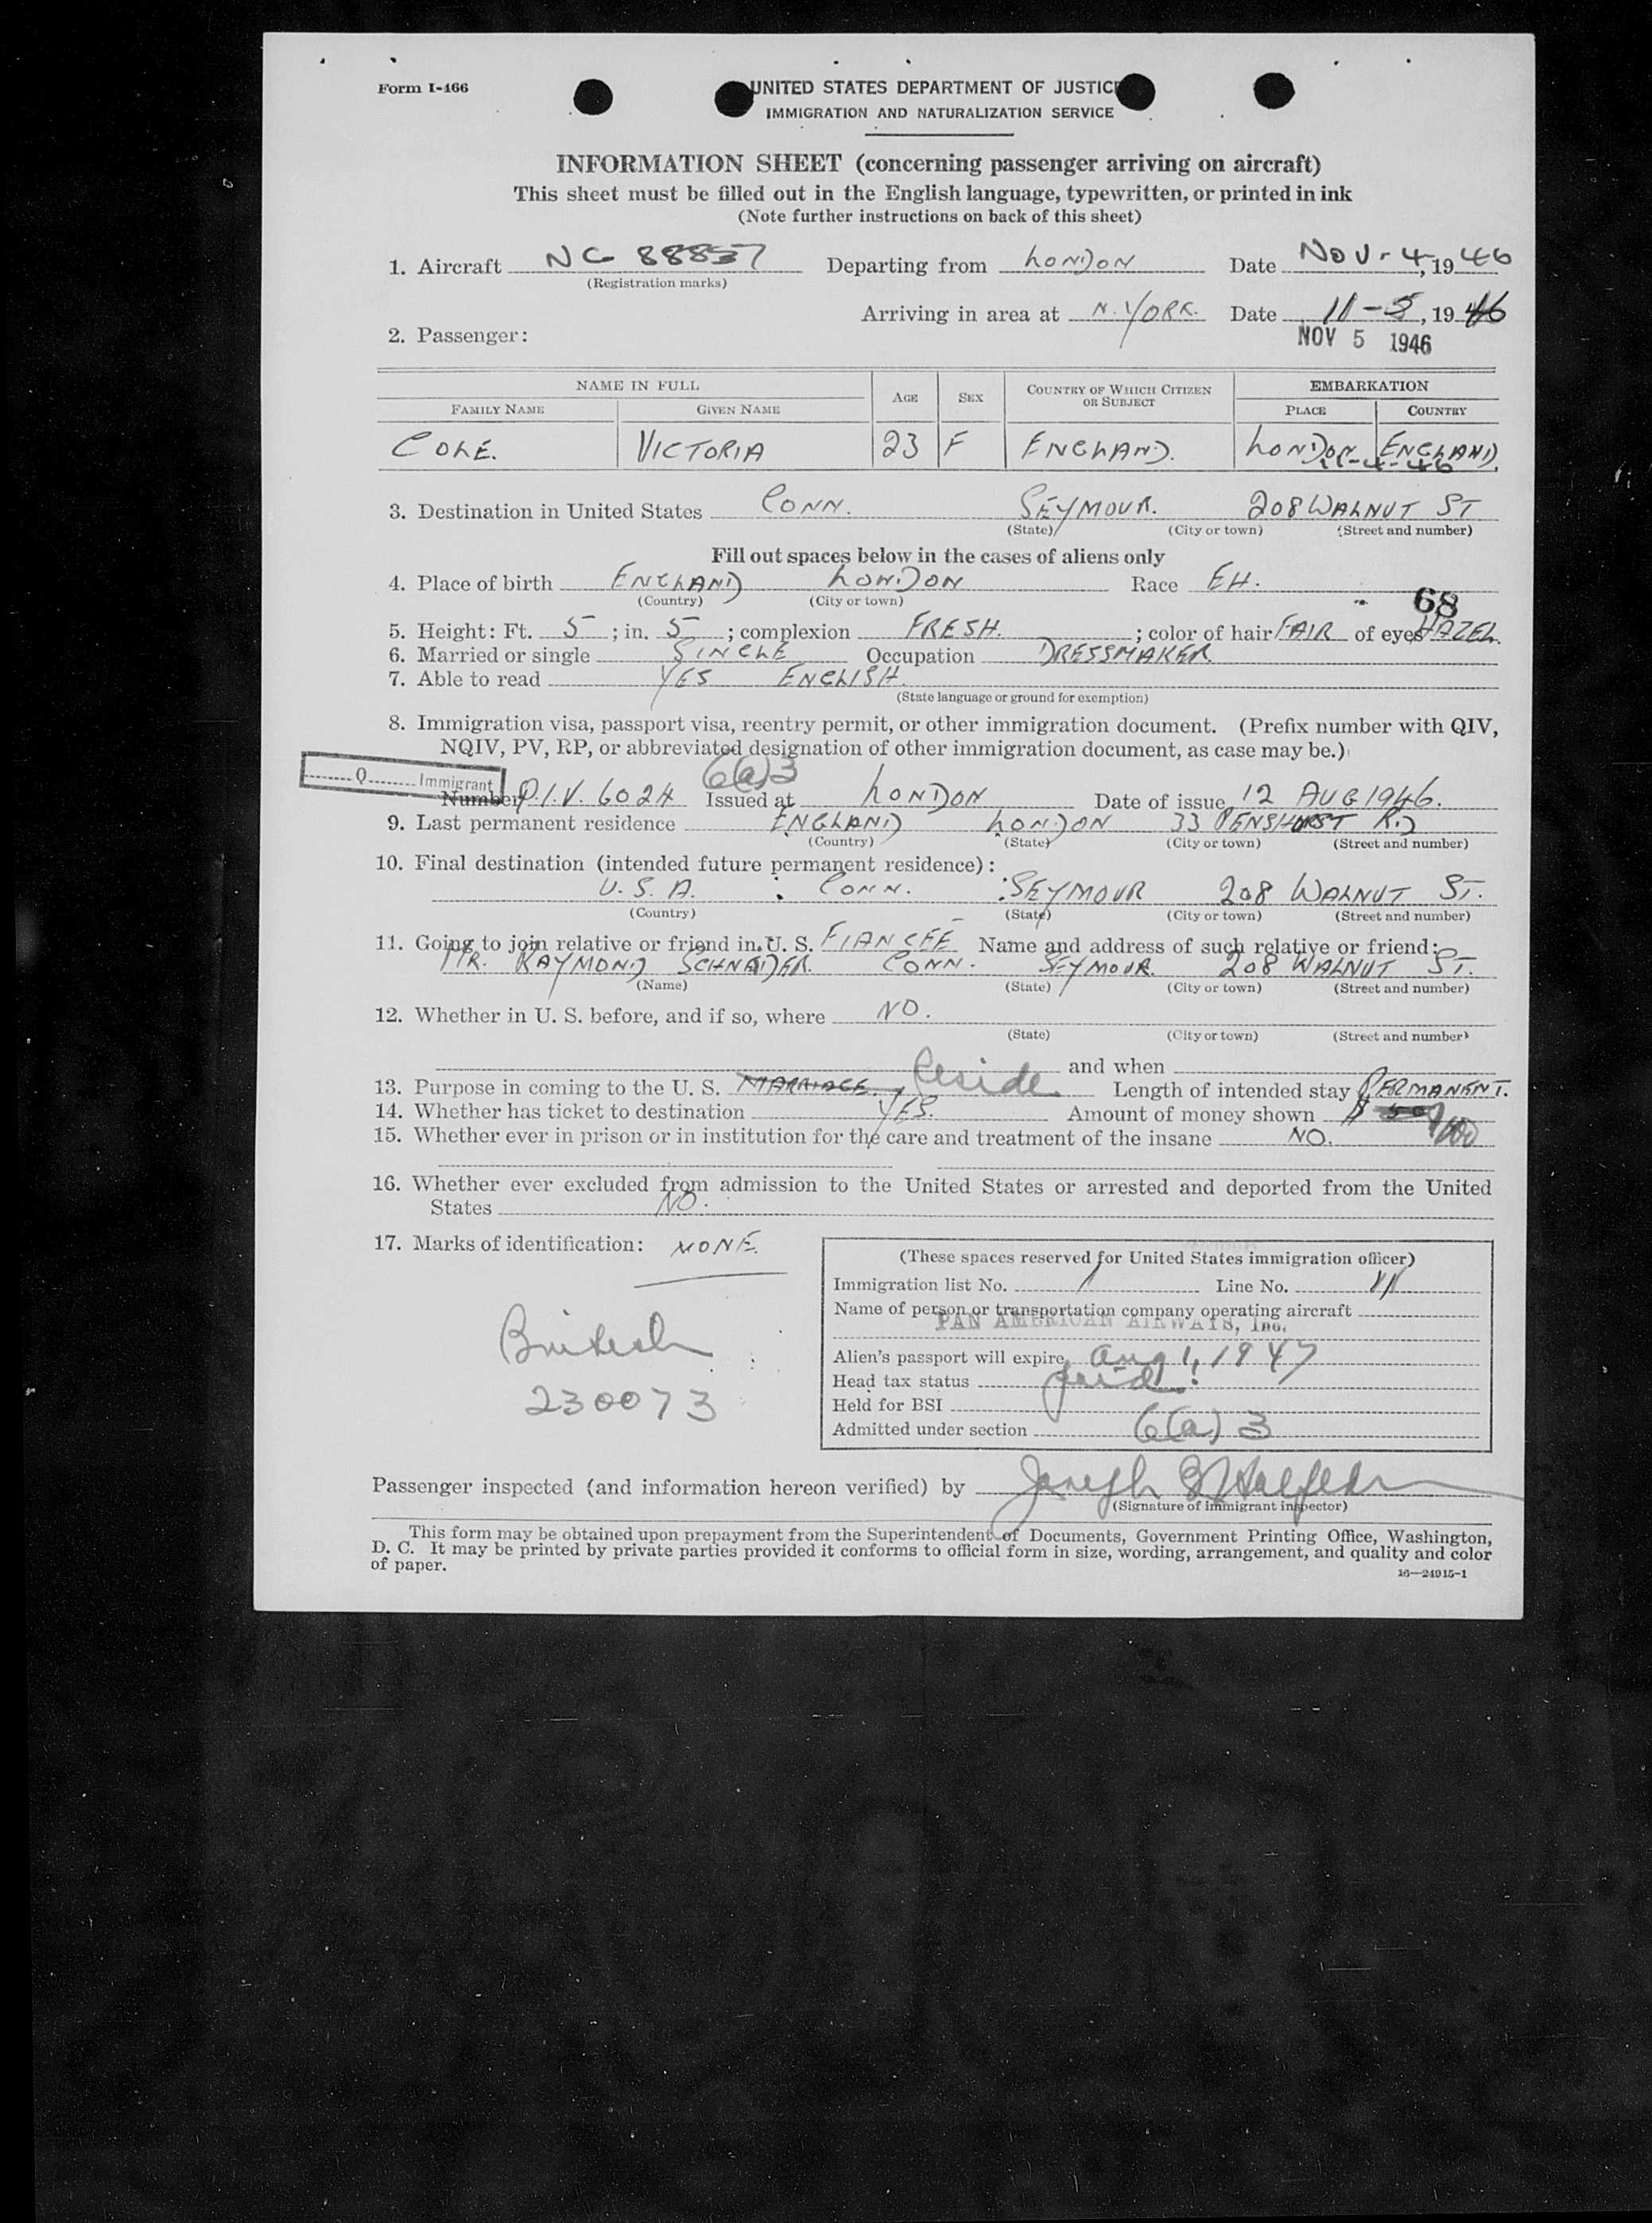 Form I-466
UNITED STATES DEPARTMENT OF JUSTICE
IMMIGRATION AND NATURALIZATION SERVICE
INFORMATION SHEET (concerning passenger arriving on aircraft)
This sheet must be filled out in the English language, typewritten, or printed in ink
(Note further instructions on back of this sheet)
1. Aircraft NC 88857 Departing from LONDON Date NOV - 4, 1946
(Registration marks)
Arriving in area at N. YORK. Date 11-5, 1946
2. Passenger: NOV 5 1946
NAME IN FULL AGE SEX COUNTRY OF WHICH CITIZEN OR SUBJECT EMBARKATION
FAMILY NAME GIVEN NAME PLACE COUNTRY
COLE. VICTORIA 23 F ENGLAND. LONDON ENGLAND.
11-4-46
3. Destination in United States CONN. SEYMOUR. 208 WALNUT ST
(State) (City or town) (Street and number)
Fill out spaces below in the cases of aliens only
4. Place of birth ENGLAND LONDON Race EH.
(Country) (City or town)
68
5. Height: Ft. 5 ; in. 5 ; complexion FRESH. ; color of hair FAIR of eyes HAZEL.
6. Married or single SINGLE Occupation DRESSMAKER.
7. Able to read YES ENGLISH.
(State language or ground for exemption)
8. Immigration visa, passport visa, reentry permit, or other immigration document. (Prefix number with QIV,
NQIV, PV, RP, or abbreviated designation of other immigration document, as case may be.)
Q Immigrant 6(a)3
Number Q.I.V. 6024 Issued at LONDON Date of issue 12 AUG 1946.
9. Last permanent residence ENGLAND LONDON 33 PENSHURST RD
(Country) (State) (City or town) (Street and number)
10. Final destination (intended future permanent residence):
U. S. A. CONN. SEYMOUR 208 WALNUT ST.
(Country) (State) (City or town) (Street and number)
11. Going to join relative or friend in U. S. FIANCÉE Name and address of such relative or friend:
MR. RAYMOND SCHNAIDER. CONN. SEYMOUR. 208 WALNUT ST.
(Name) (State) (City or town) (Street and number)
12. Whether in U. S. before, and if so, where NO.
(State) (City or town) (Street and number)
and when
13. Purpose in coming to the U. S. MARRIAGE. Reside Length of intended stay PERMANENT.
14. Whether has ticket to destination YES. Amount of money shown $ 50 100
15. Whether ever in prison or in institution for the care and treatment of the insane NO.
16. Whether ever excluded from admission to the United States or arrested and deported from the United
States NO.
17. Marks of identification: NONE.
(These spaces reserved for United States immigration officer)
Immigration list No. Line No.
Name of person or transportation company operating aircraft
PAN AMERICAN AIRWAYS, Inc.
British
230073
Alien's passport will expire Aug 1, 1947
Head tax status paid
Held for BSI
Admitted under section 6(a) 3
Passenger inspected (and information hereon verified) by Joseph
(Signature of immigrant inspector)
This form may be obtained upon prepayment from the Superintendent of Documents, Government Printing Office, Washington,
D. C. It may be printed by private parties provided it conforms to official form in size, wording, arrangement, and quality and color
of paper.
16—24915-1